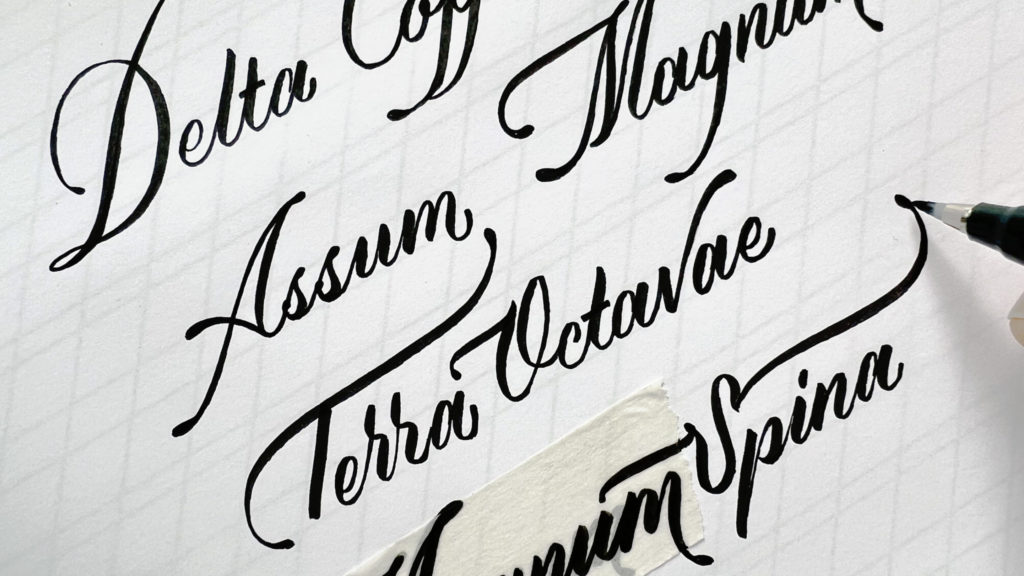 Delta
Magnum
Assum
Terra Octavae
Spina